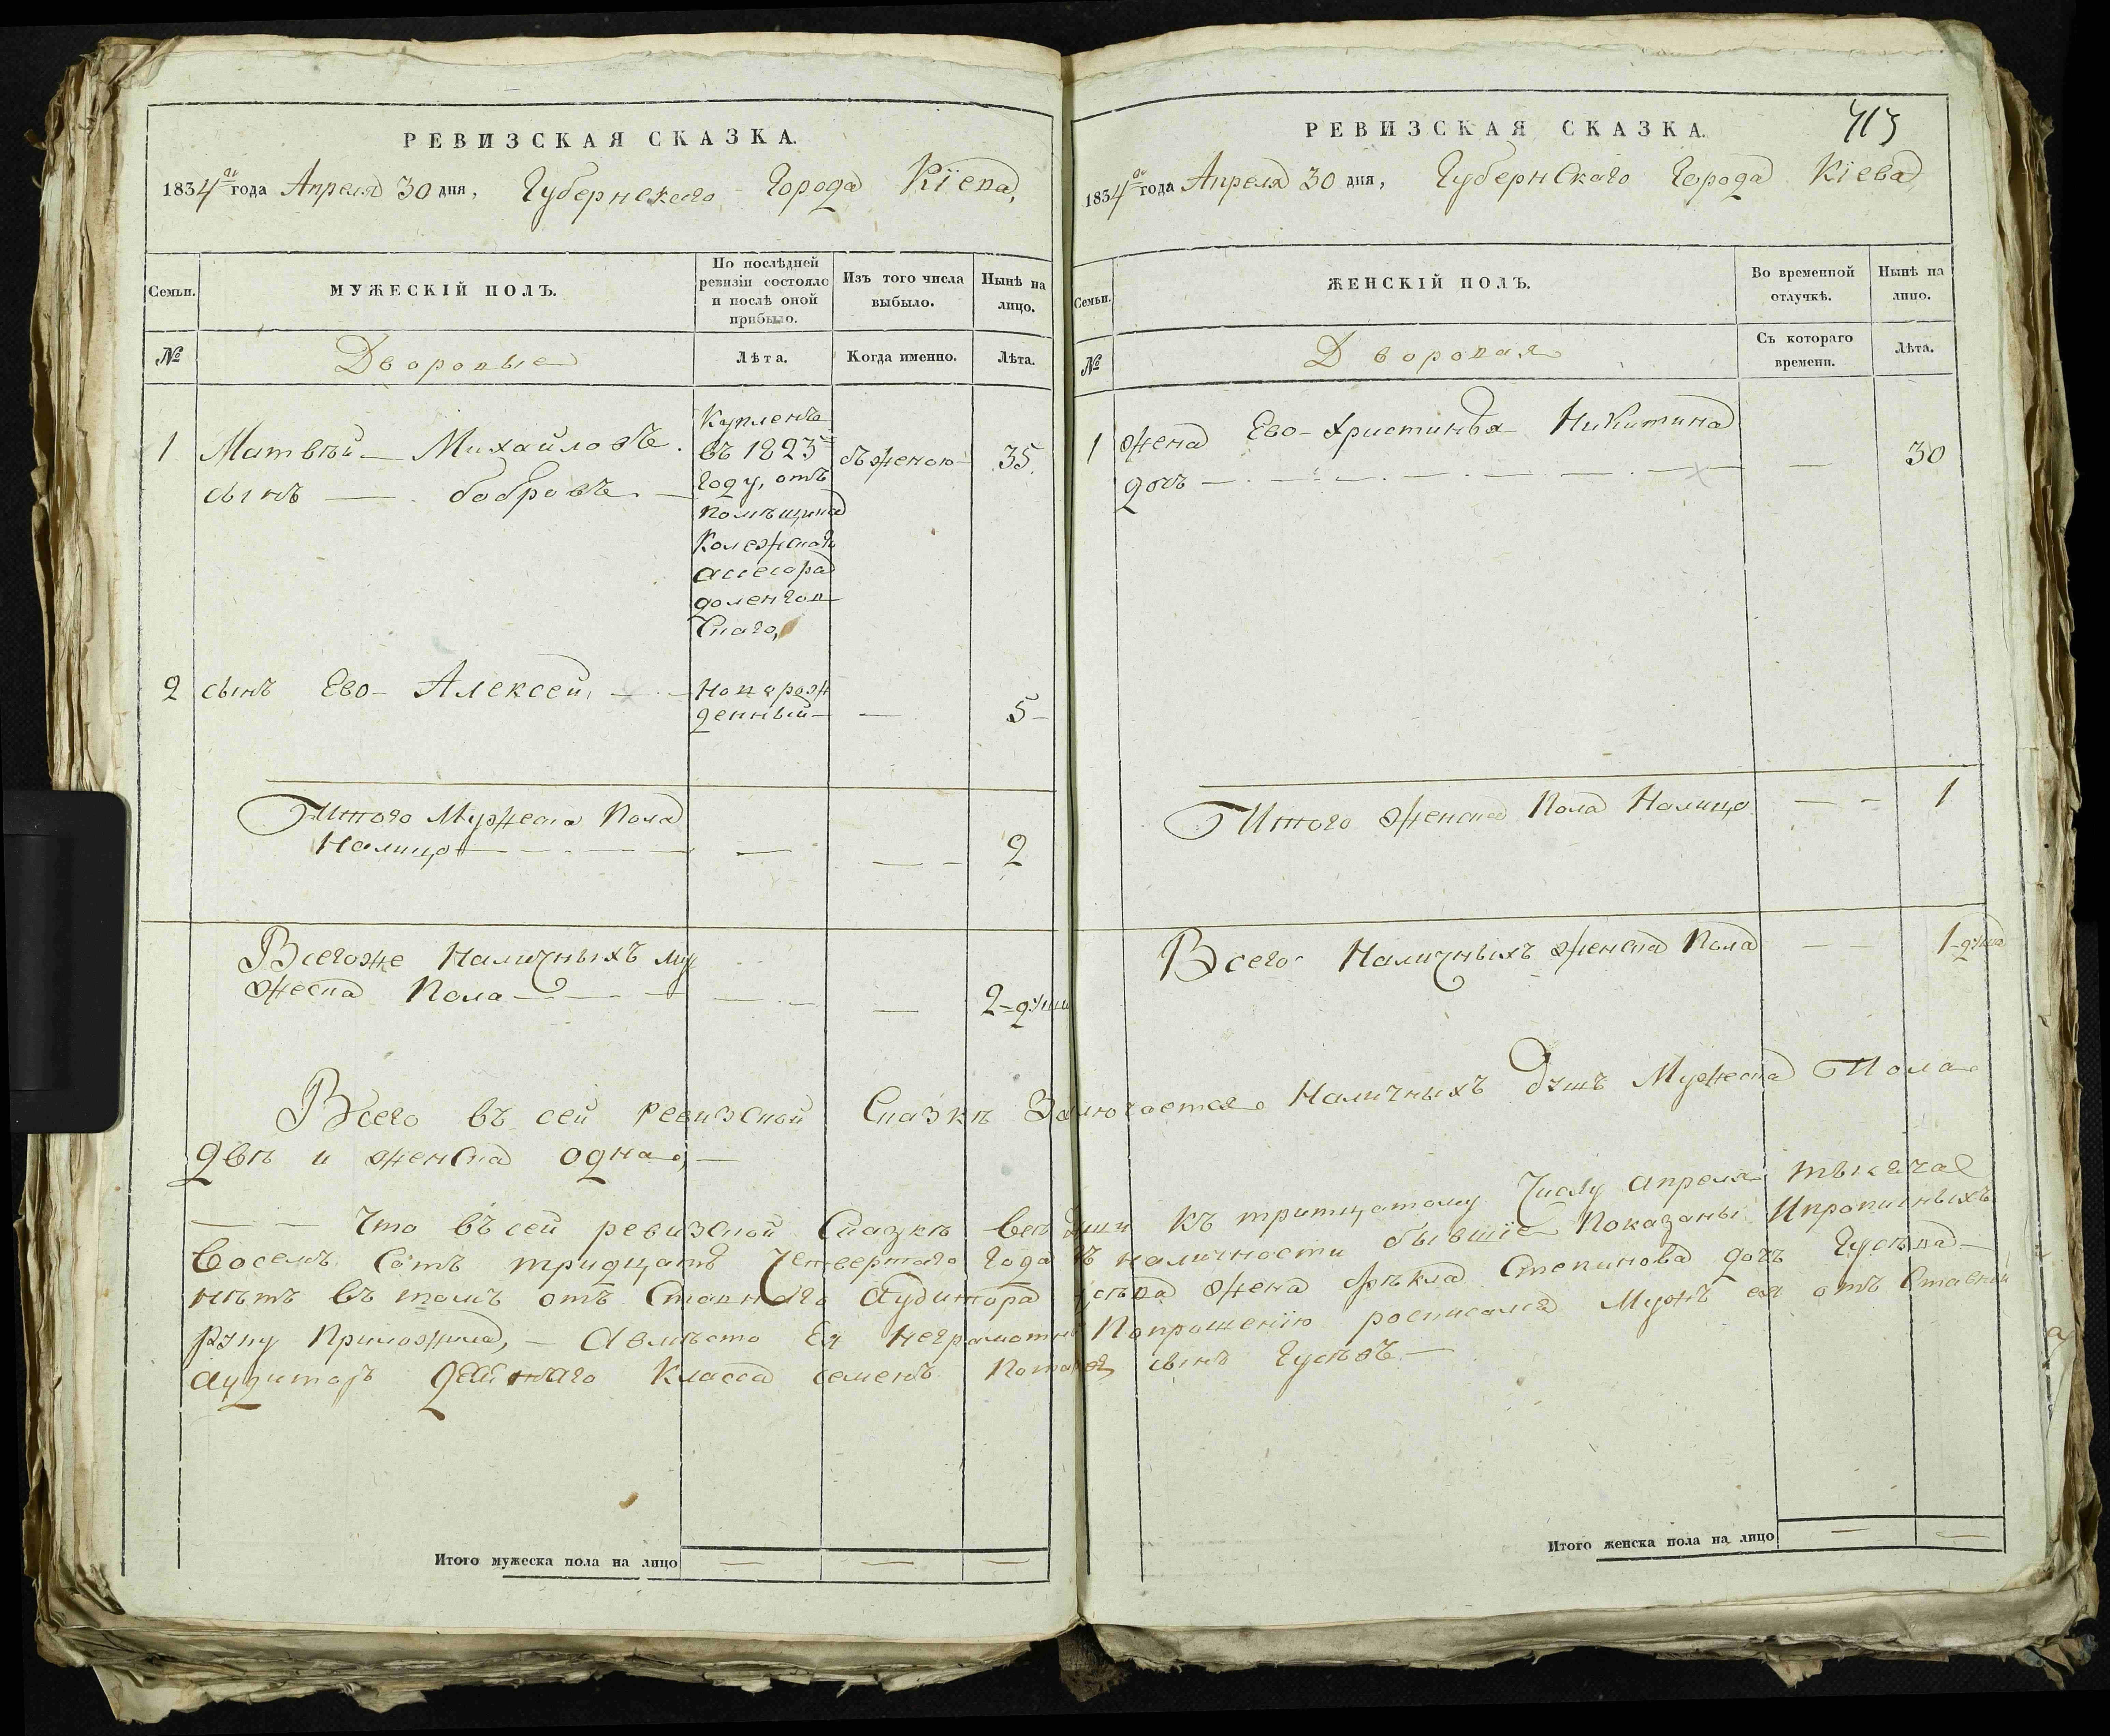 РЕВИЗСКАЯ СКАЗКА.
1834го года Апреля 30 дня, Губернскаго Города Кіева,
Семьи.
МУЖЕСКІЙ ПОЛЪ.
По послѣдней ревизіи состояло и послѣ оной прибыло.
Изъ того числа выбыло.
Нынѣ на лицо.
№
Дворовые
Лѣта.
Когда именно.
Лѣта.
1 Матвѣй Михайловъ
сынъ бобровъ
Купленъ
въ 1823
Году, отъ
помѣщика
Колежскаго
асесора
доленгов
скаго,
съ женою
35
2 сынъ Ево Алексей,
новорож
денный
5
Итого Мужеска Пола
Налицо
2
Всегоже Наличныхъ му
жеска Пола
2 души
РЕВИЗСКАЯ СКАЗКА.
413
1834го года Апреля 30 дня, Губернскаго Города Кіева
Семьи.
ЖЕНСКІЙ ПОЛЪ.
Во временной отлучкѣ.
Нынѣ на лицо.
№
Дворовая
Съ котораго времени.
Лѣта.
1 жена Ево Христинья Никитина
дочь
30
Итого женска Пола Налицо
1
Всего Наличныхъ женска Пола
1 душа
Всего въ сей ревизской Сказкѣ Заключается Наличныхъ душъ Мужеска Пола
двѣ и женска одна,
Что въ сей ревизской Сказкѣ всѣ души къ тритцатому Числу апреля тысяча
восемь Сотъ тридцать Четвертаго Года въ наличности бывшіе Показаны И прописныхъ
нѣтъ въ томъ отъ Аудитора Гусѣва жена Ѳёкла дочь Гусѣва
руку Приложила, А вмѣсто Ея неграмотной По прошенію росписался Мужъ ея
аудиторъ Класса семенъ сынъ Гусѣвъ
Итого мужеска пола на лицо
Итого женска пола на лицо